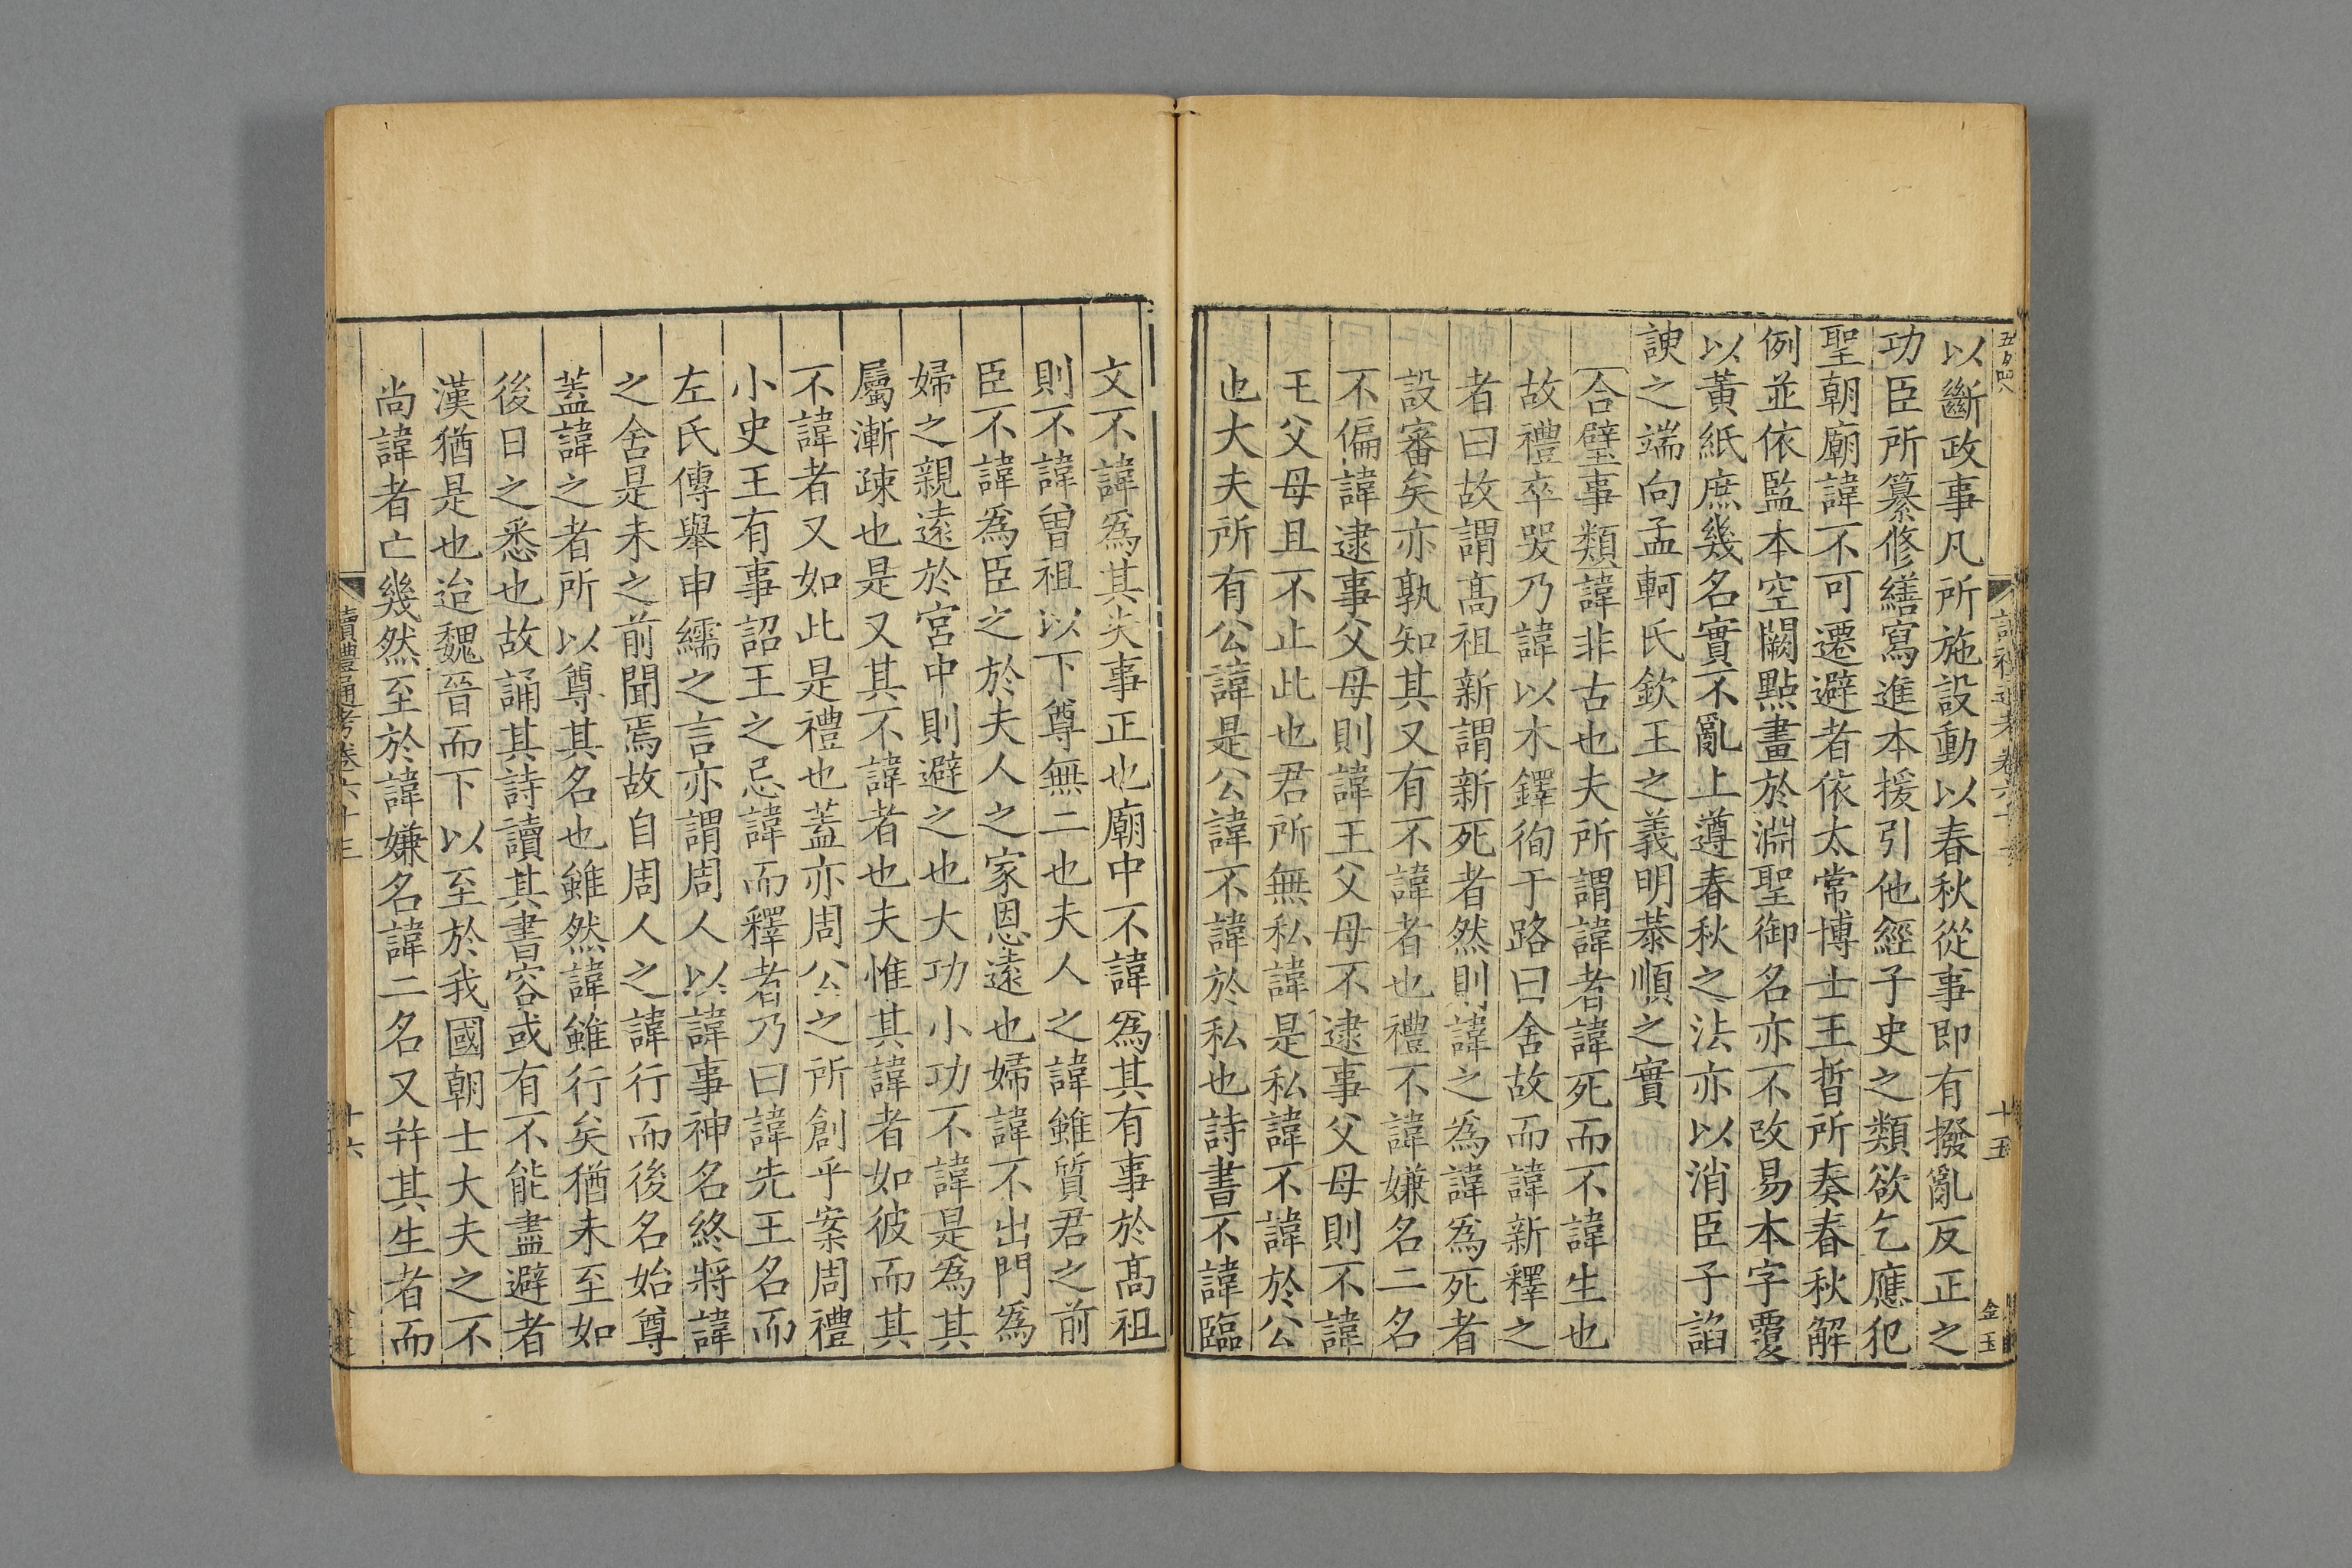 以斷政事凡所施設動以春秋從事即有撥亂反正之
功臣所纂修繕寫進本援引他經子史之類欲乞應犯
聖朝廟諱不可遷避者依太常博士王晳所奏春秋解
例並依監本空闕點畫於淵聖御名亦不改易本字覆
以黃紙庶幾名實不亂上遵春秋之法亦以消臣子諂
諛之端向孟軻氏欽王之義明恭順之實
合璧事類諱非古也夫所謂諱者諱死而不諱生也
故禮卒哭乃諱以木鐸徇于路曰舍故而諱新釋之
者曰故謂高祖新謂新死者然則諱之爲諱爲死者
設審矣亦孰知其又有不諱者也禮不諱嫌名二名
不偏諱逮事父母則諱王父母不逮事父母則不諱
王父母且不止此也君所無私諱是私諱不諱於公
也大夫所有公諱是公諱不諱於私也詩書不諱臨
文不諱爲其失事正也廟中不諱爲其有事於高祖
則不諱曾祖以下尊無二也夫人之諱雖質君之前
臣不諱爲臣之於夫人之家恩遠也婦諱不出門爲
婦之親遠於宮中則避之也大功小功不諱是爲其
屬漸疎也是又其不諱者也夫惟其諱者如彼而其
不諱者又如此是禮也蓋亦周公之所創乎案周禮
小史王有事詔王之忌諱而釋者乃曰諱先王名而
左氏傳舉申繻之言亦謂周人以諱事神名終將諱
之舍是未之前聞焉故自周人之諱行而後名始尊
蓋諱之者所以尊其名也雖然諱雖行矣猶未至如
後日之悉也故誦其詩讀其書容或有不能盡避者
漢猶是也迨魏晉而下以至於我國朝士大夫之不
尚諱者亡幾然至於諱嫌名諱二名又幷其生者而
讀禮通考卷六十三
十六
十五
金玉